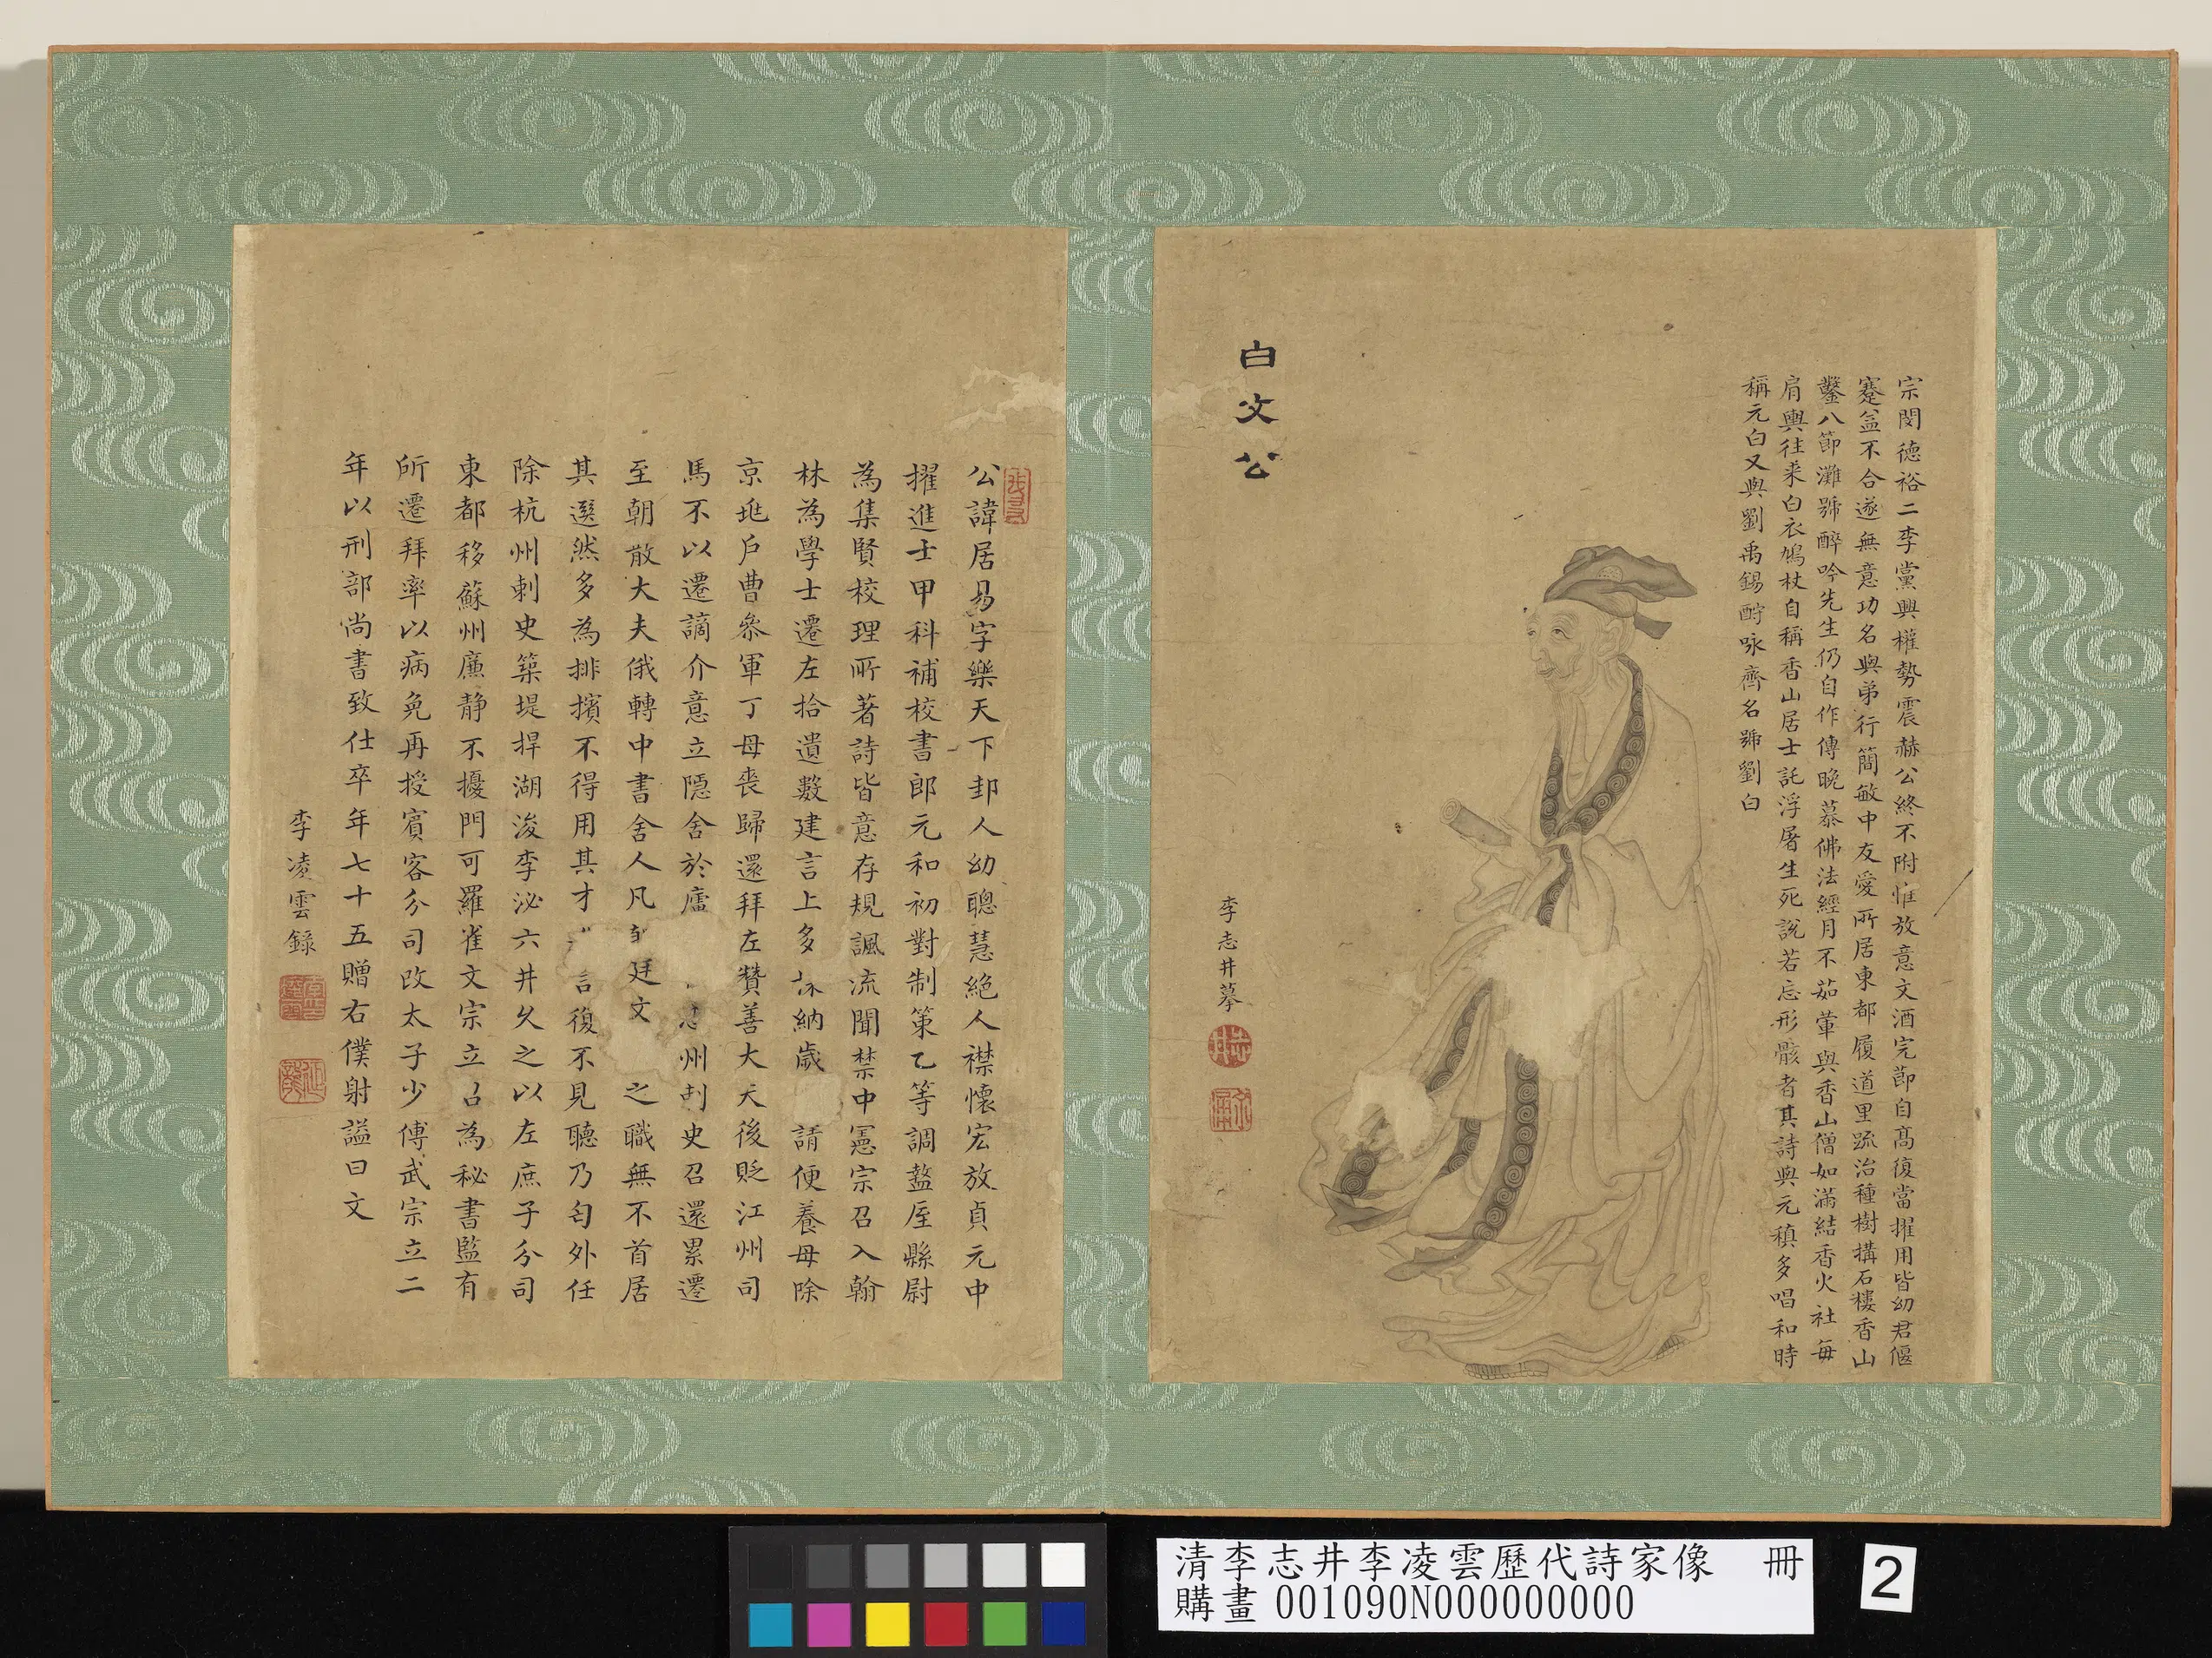 白文公
宗閔德裕二李黨興權勢震赫公終不附惟放意文酒完節自高復當擢用皆幼君偃
蹇益不合遂無意功名與弟行簡敏中友愛所居東都履道里疏治種樹搆石樓香山
鑿八節灘號醉吟先生仍自作傳晚慕佛法經月不茹葷與香山僧如滿結香火社每
肩輿往來白衣鳩杖自稱香山居士託浮屠生死說若忘形骸者其詩與元稹多唱和時
稱元白又與劉禹錫酧咏齊名號劉白
李志井摹
志井
公諱居易字樂天下邽人幼聰慧絕人襟懷宏放貞元中
擢進士甲科補校書郎元和初對制策乙等調盩厔縣尉
為集賢校理所著詩皆意存規諷流聞禁中憲宗召入翰
林為學士遷左拾遺數建言上多 納歲 請便養母除
京兆戶曹叅軍丁母喪歸還拜左贊善大夫後貶江州司
馬不以遷謫介意立隱舍於廬 忠州刺史召還累遷
至朝散大夫俄轉中書舍人凡 廷文 之職無不首居
其選然多為排擯不得用其才 言復不見聽乃匄外任
除杭州刺史築堤捍湖浚李泌六井久之以左庶子分司
東都移蘇州廉静不擾門可羅雀文宗立召為秘書監有
所遷拜率以病免再授賓客分司改太子少傅武宗立二
年以刑部尚書致仕卒年七十五贈右僕射謚曰文
李凌雲錄
清李志井李凌雲歷代詩家像 冊
購畫 001090N000000000
2